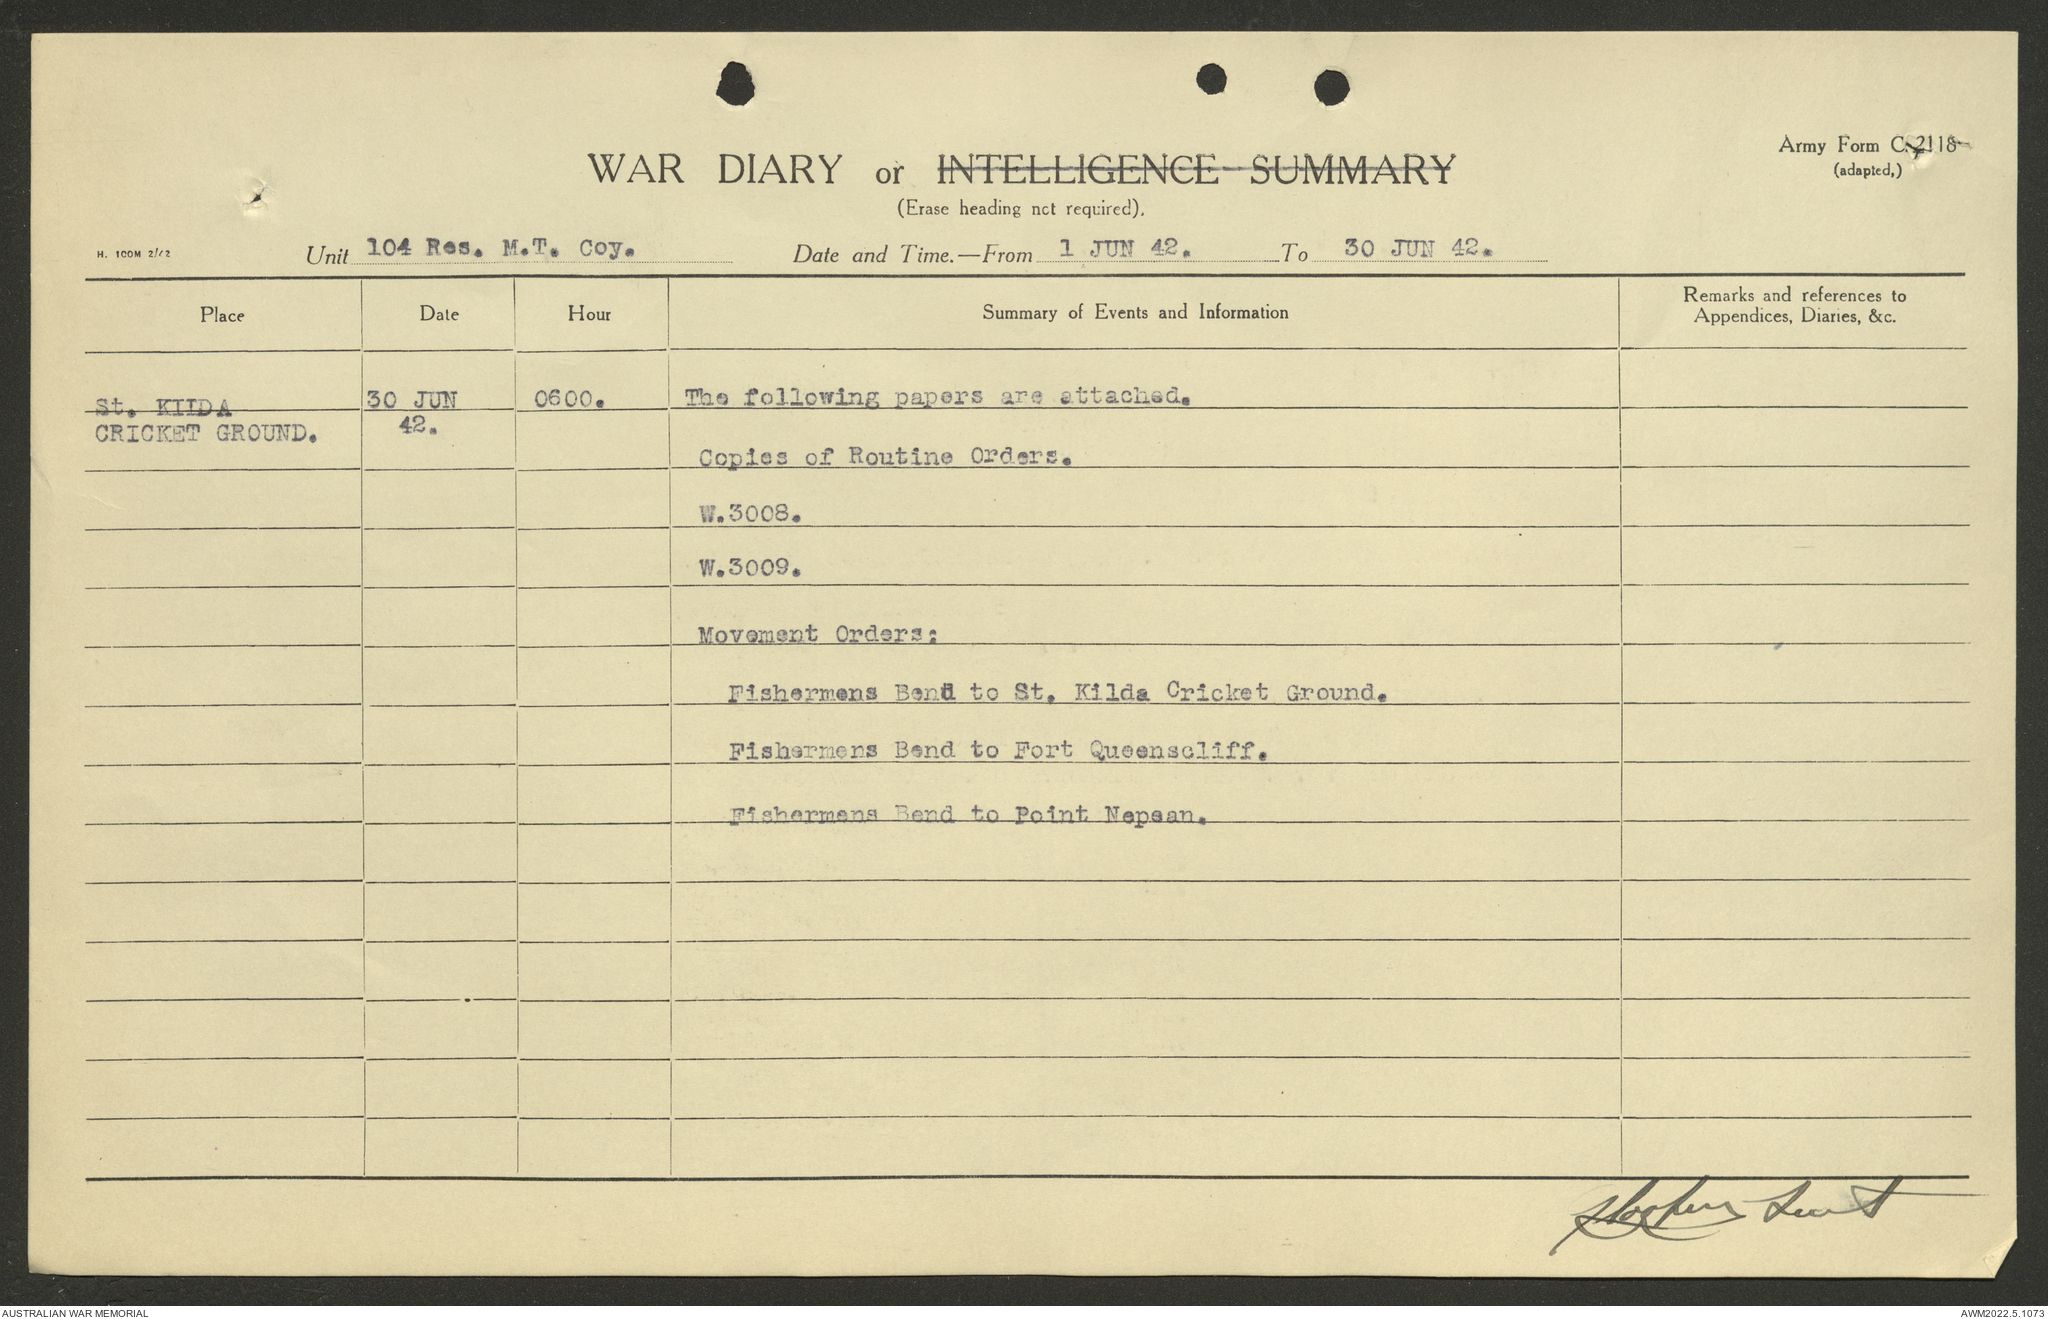 Army Form C. 2118
(adapted,)
WAR DIARY or INTELLIGENCE SUMMARY
(Erase heading not required).
H. 100M 2/42
Unit 104 Res. M.T. Coy. Date and Time.—From 1 JUN 42. To 30 JUN 42.
Place Date Hour Summary of Events and Information Remarks and references to
Appendices, Diaries, &c.
St. KIIDA 30 JUN 0600. The following papers are attached.
CRICKET GROUND. 42.
Copies of Routine Orders.
W.3008.
W.3009.
Movement Orders:
Fishermens Bend to St. Kilda Cricket Ground.
Fishermens Bend to Fort Queenscliff.
Fishermens Bend to Point Nepean.
AUSTRALIAN WAR MEMORIAL AWM2022.5.1073